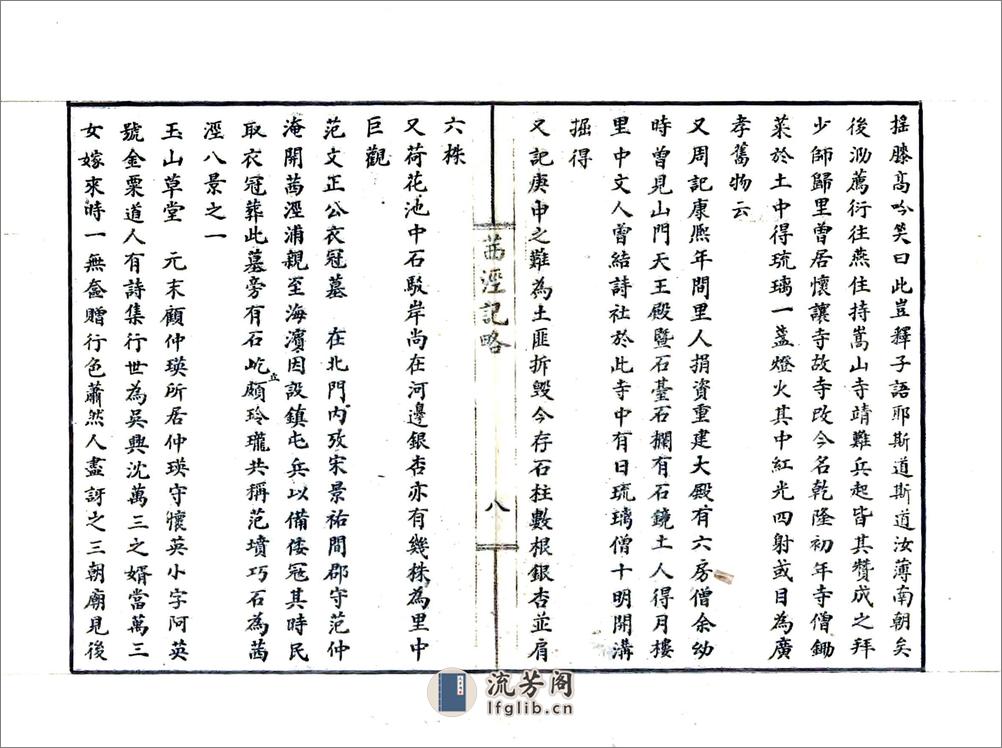 搖膝高吟笑曰此豈釋子語耶斯道斯道汝薄南朝矣
後泐薦衍往燕住持嵩山寺靖難兵起皆其贊成之拜
少師歸里曾居懷讓寺故寺改今名乾隆初年寺僧鋤
菜於土中得琉璃一盞燈火其中紅光四射或目為廣
孝舊物云
又周記康熙年間里人捐資重建大殿有六房僧余幼
時曾見山門天王殿暨石臺石欄有石鏡土人得月樓
里中文人曾結詩社於此寺中有日琉璃僧十明開溝
掘得
又記庚申之難為土匪拆毀今存石柱數根銀杏並肩
茜涇記略
八
六株
又荷花池中石駁岸尚在河邊銀杏亦有幾株為里中
巨觀
范文正公衣冠墓 在北門內攷宋景祐間郡守范仲
淹開茜涇浦親至海濱因設鎮屯兵以備倭寇其時民
取衣冠葬此墓旁有石屹立頗玲瓏共稱范墳巧石為茜
涇八景之一
玉山草堂 元末顧仲瑛所居仲瑛守懷英小字阿英
號金粟道人有詩集行世為吳興沈萬三之婿當萬三
女嫁來時一無奩贈行色蕭然人盡訝之三朝廟見後
流芳阁
lfglib.cn